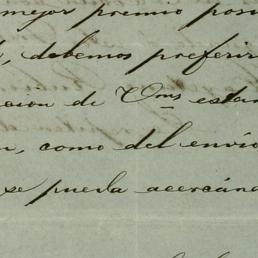 mejor premio posi
, debemos preferir
cion de Vms estan
, como del envio
se pueda acercán